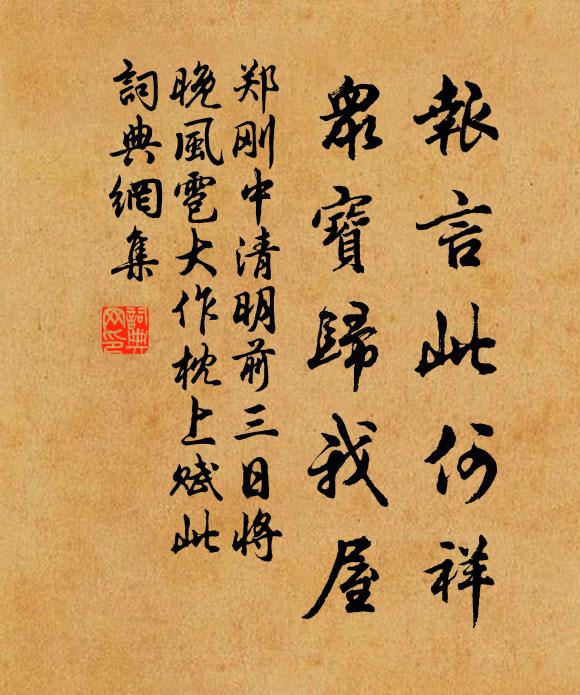 報言此何祥
眾寶歸我屋
郑刚中清明前三日將
晚風雹大作枕上赋此
詞典網集
詞典
网印